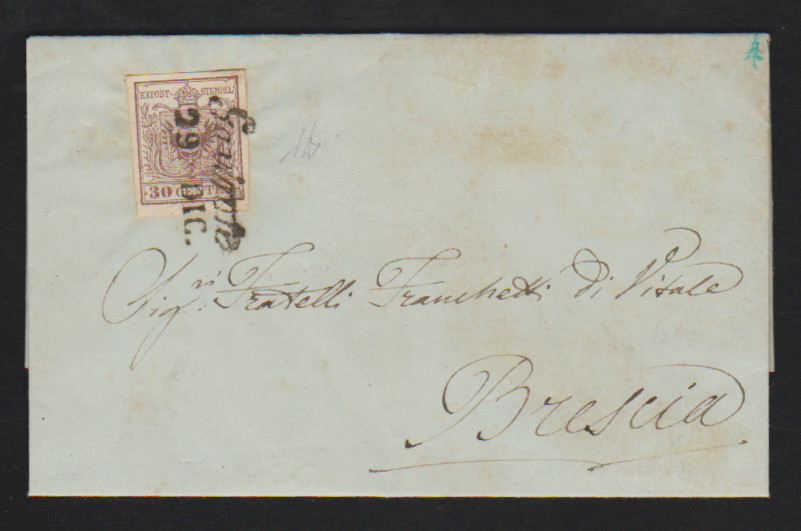 KKPOST-STEMPEL
30 CENTES
29 DIC.
Sig.ri Fratelli Franchetti di Vitale
Brescia